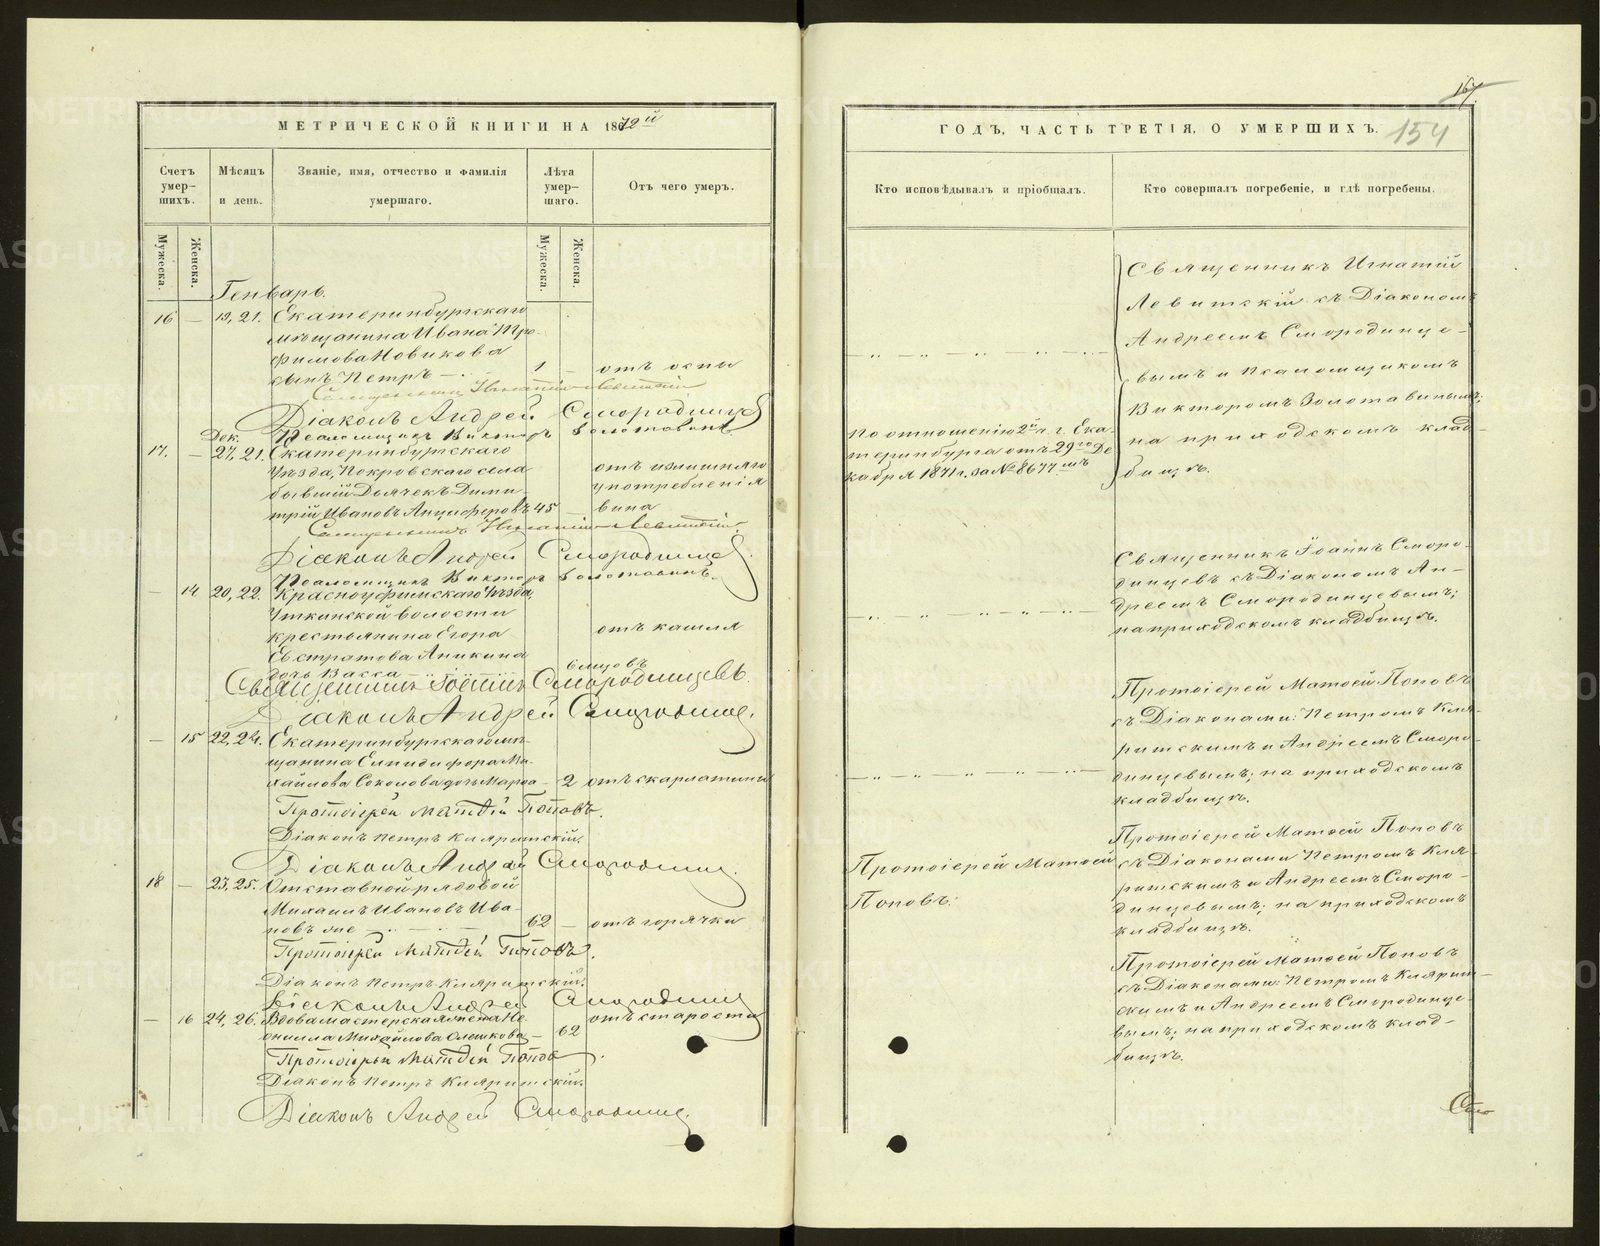 МЕТРИЧЕСКОЙ КНИГИ НА 1872й
Счетъ умер-шихъ.
Мѣсяцъ и день.
Званіе, имя, отчество и фамилія умершаго.
Лѣта умер-шаго.
Отъ чего умеръ.
Мужеска.
Женска.
Мужеска.
Женска.
Генварь.
16 — 19, 21. Екатеринбургскаго
мѣщанина Ивана Тро-
фимова Новикова
сынъ Петръ — 1 — отъ оспы
Священникъ Игнатій Левитскій
Діаконъ Андрей Смородинцев
Псаломщикъ Викторъ Золотавинъ
Дек.
17. — 27, 21. Екатеринбургскаго
уѣзда, Покровскаго села
бывшій Дьячекъ Дими-
трій Ивановъ Анциферовъ 45 —
отъ излишняго
употребленія
вина
Священникъ Игнатій Левитскій
Діаконъ Андрей Смородинцев
Псаломщикъ Викторъ Золотавинъ.
— 14 20, 22. Красноуфимскаго уѣзда,
Уткинской волости
крестьянина Егора
Евстратова Аникина
дочь Васса 6 мцовъ
отъ кашля
Священникъ Іоаннъ Смородинцевъ.
Діаконъ Андрей Смородинцев.
— 15 22, 24. Екатеринбургскаго мѣ-
щанина Елпидифора Ми-
хайлова Соколова дочь Марѳа — 2 отъ скарлатины
Протоіерей Матѳій Поповъ.
Діаконъ Петръ Кляритскій.
Діаконъ Андрей Смородинцев.
18 — 23, 25. Отставной рядовой
Михаилъ Ивановъ Ива-
новъ же — 62 — отъ горячки
Протоіерей Матѳій Поповъ.
Діаконъ Петръ Кляритскій.
Діаконъ Андрей Смородинцев
— 16 24, 26. Вдова мастерская жена Не-
онилла Михайлова Олешкова — 62 отъ старости
Протоіерей Матѳій Поповъ.
Діаконъ Петръ Кляритскій.
Діаконъ Андрей Смородинцев.
167
154
ГОДЪ, ЧАСТЬ ТРЕТІЯ, О УМЕРШИХЪ.
Кто исповѣдывалъ и пріобщалъ.
Кто совершалъ погребеніе, и гдѣ погребены.
Священникъ Игнатій
Левитскій съ Діакономъ
Андреемъ Смородинце-
вымъ и Псаломщикомъ
Викторомъ Золотавинымъ;
на приходскомъ клад-
бищѣ.
По отношенію 2й ч. г. Ека-
теринбурга отъ 29го Де-
кабря 1871 г. за № 8677мъ
Священникъ Іоаннъ Сморо-
динцевъ съ Діакономъ Ан-
дреемъ Смородинцевымъ;
на приходскомъ кладбищѣ.
Протоіерей Матѳей Поповъ
съ Діаконами: Петромъ Кля-
ритскимъ и Андреемъ Сморо-
динцевымъ; на приходскомъ
кладбищѣ.
Протоіерей Матѳей
Поповъ.
Протоіерей Матѳей Поповъ
съ Діаконами Петромъ Кля-
ритскимъ и Андреемъ Сморо-
динцевымъ; на приходскомъ
кладбищѣ.
Протоіерей Матѳей Поповъ
съ Діаконами: Петромъ Клярит-
скимъ и Андреемъ Смородинце-
вымъ; на приходскомъ клад-
бищѣ.
Сто